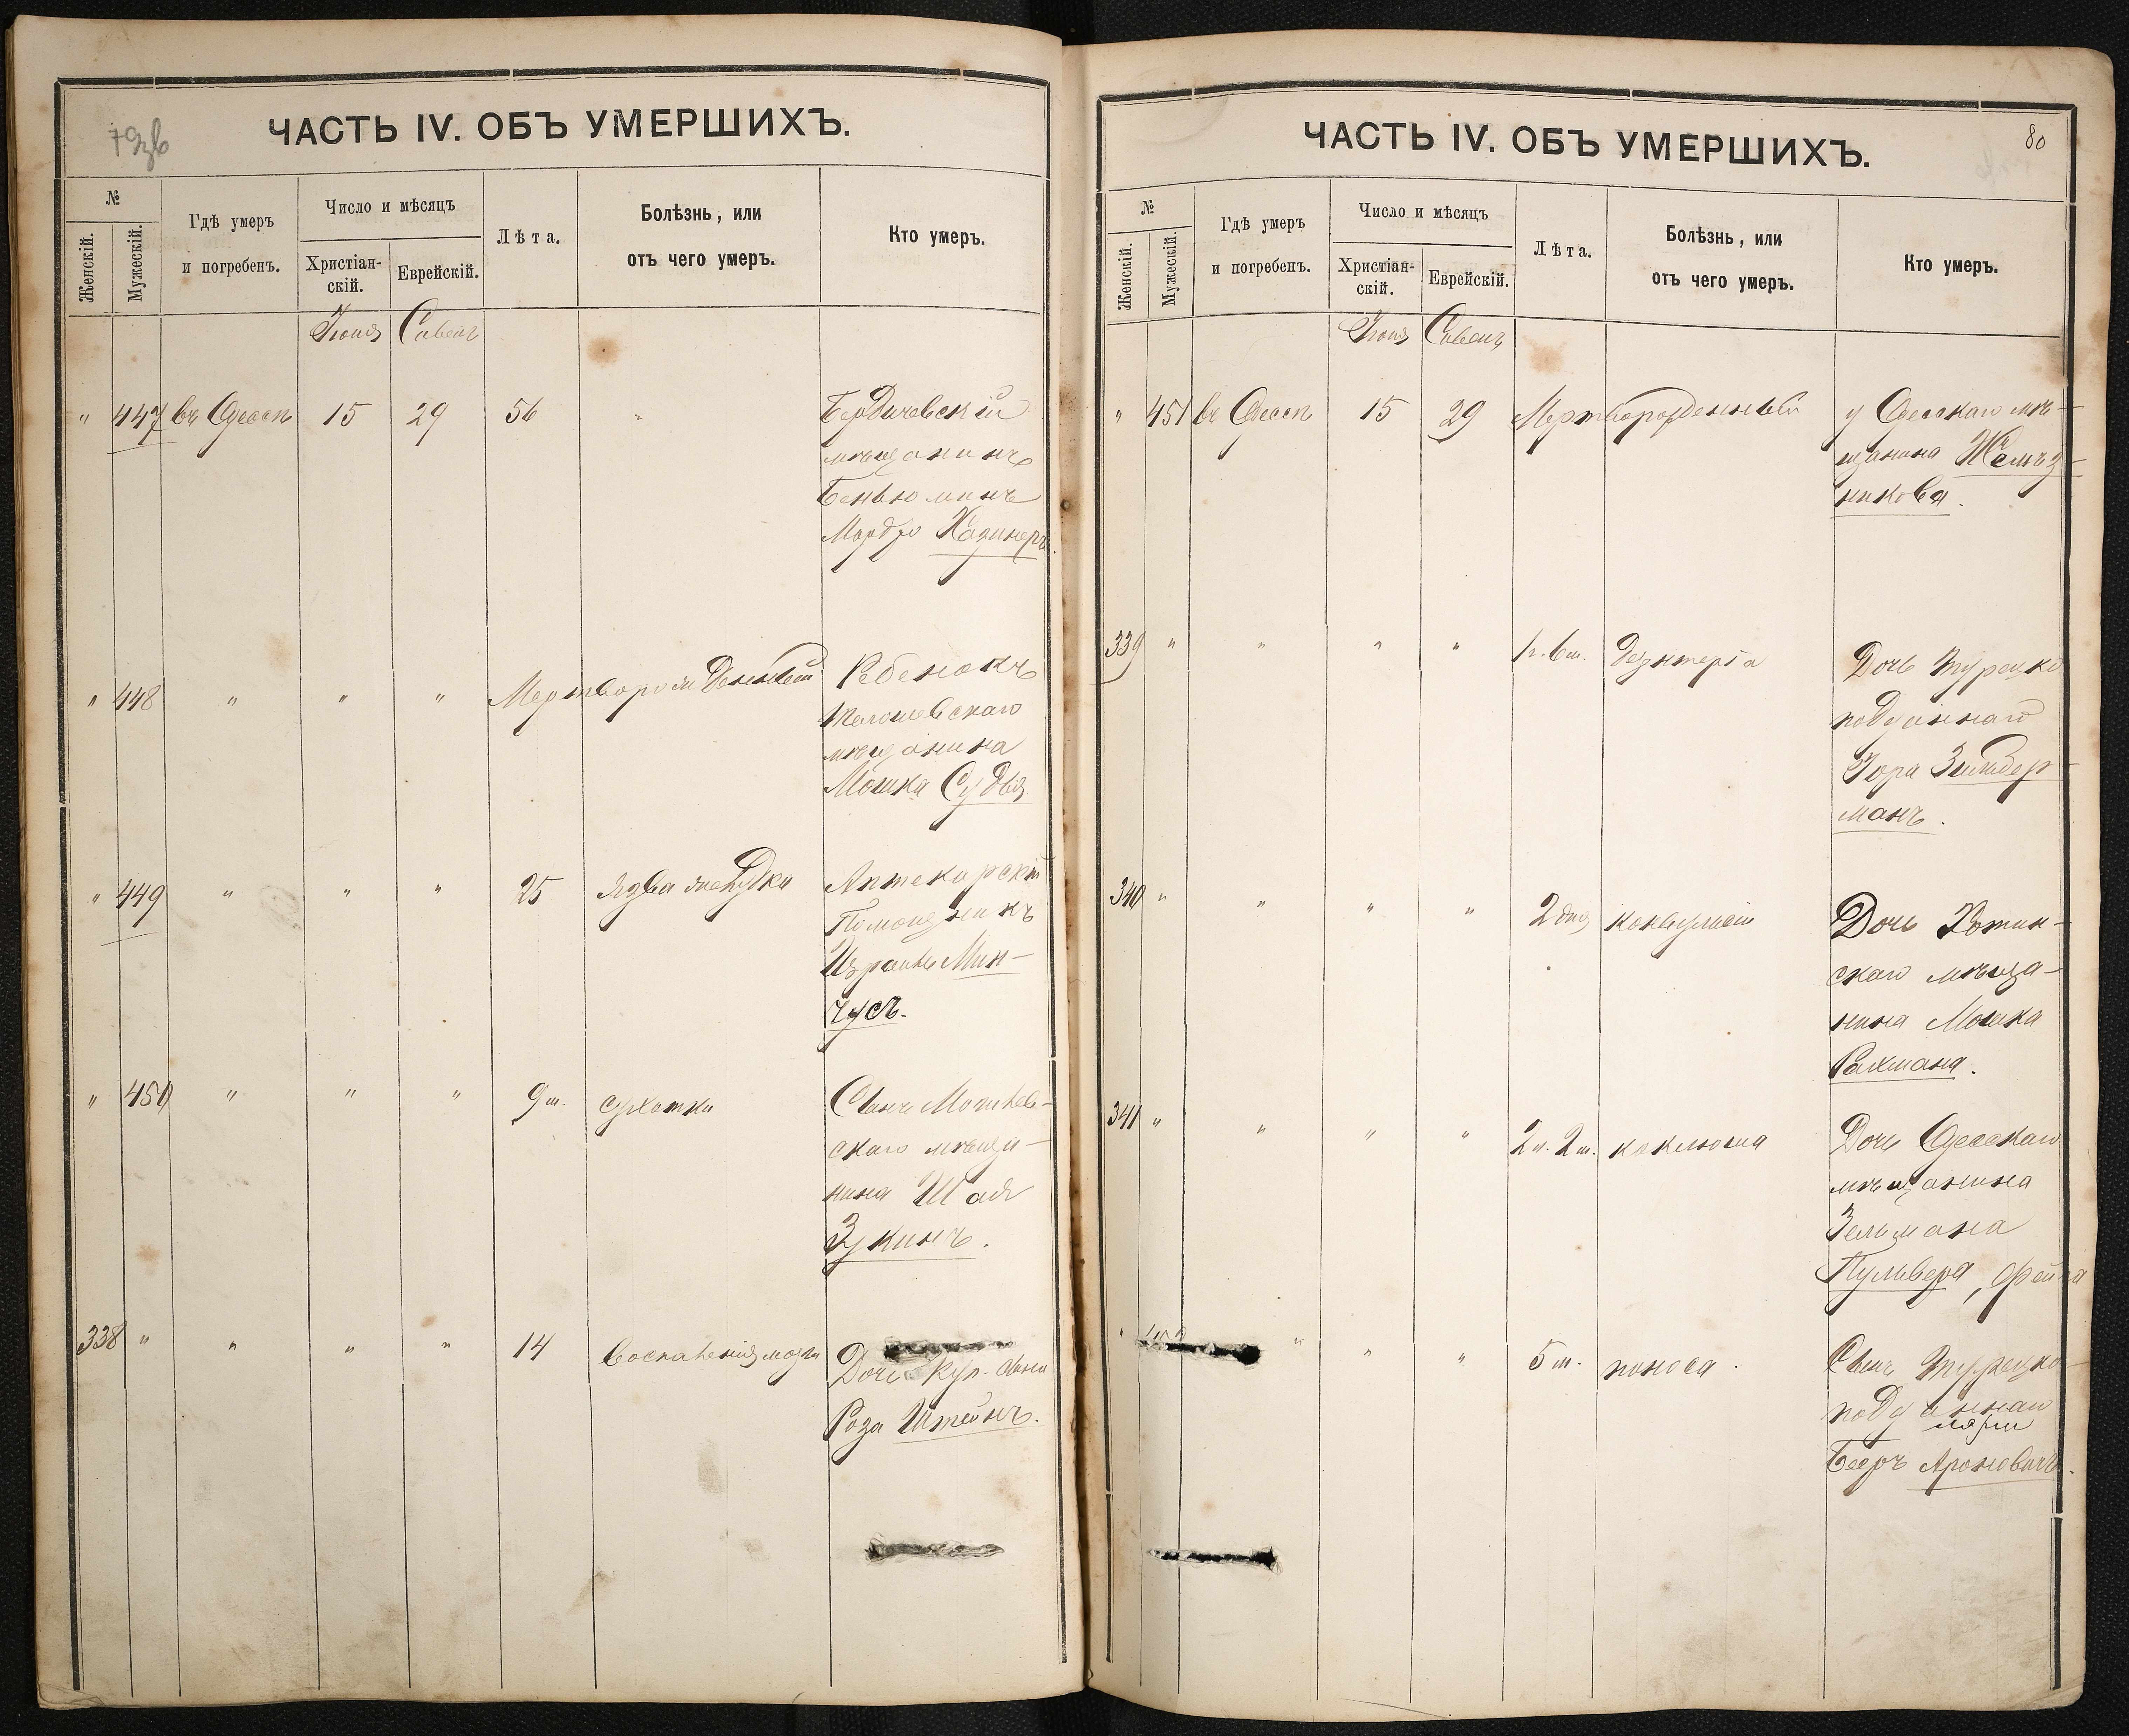 79зв
ЧАСТЬ IV. ОБЪ УМЕРШИХЪ.
№
Женскій.
Мужескій.
Гдѣ умеръ
и погребенъ.
Число и мѣсяцъ
Христіан-
скій.
Еврейскій.
Лѣта.
Болѣзнь, или
отъ чего умеръ.
Кто умеръ.
Іюня Сивенъ
" 447 въ Одессѣ 15 29 56 "
Бердичевскій
мѣщанинъ
Беньюминъ
" 448 " " " Мертворожденный
Ребенокъ
мѣщанина
Мошка Судья
" 449 " " " 25 язва желудка
Аптекарскій
Помощникъ
Израиль Мин-
чусъ.
" 450 " " " 9 м. сухотки
Сынъ Могилев-
скаго мѣща-
нина Шая
Зукинъ.
338 " " " " 14 воспаленія мозга
Дочь куп. сына
Роза Штейнъ.
80
ЧАСТЬ IV. ОБЪ УМЕРШИХЪ.
№
Женскій.
Мужескій.
Гдѣ умеръ
и погребенъ.
Число и мѣсяцъ
Христіан-
скій.
Еврейскій.
Лѣта.
Болѣзнь, или
отъ чего умеръ.
Кто умеръ.
Іюня Сивенъ
" 451 въ Одессѣ 15 29 Мертворожденный
у Одесскаго мѣ-
щанина Желѣз-
никова.
339 " " " " 1 г. 6 м.
Дочь турецко
подданнаго
Зильбер-
манъ.
340 " " " " 2 дня конвульсіи
Дочь Хотин-
скаго мѣща-
нина Мошка
Рахмана.
341 " " " " 2 г. 2 м. коклюша
Дочь Одесскаго
мѣщанина
Зельмана
Пульвера, Фейга
" " " " 5 м. поноса.
Сынъ турецко-
подданнаго
Ароновичъ.